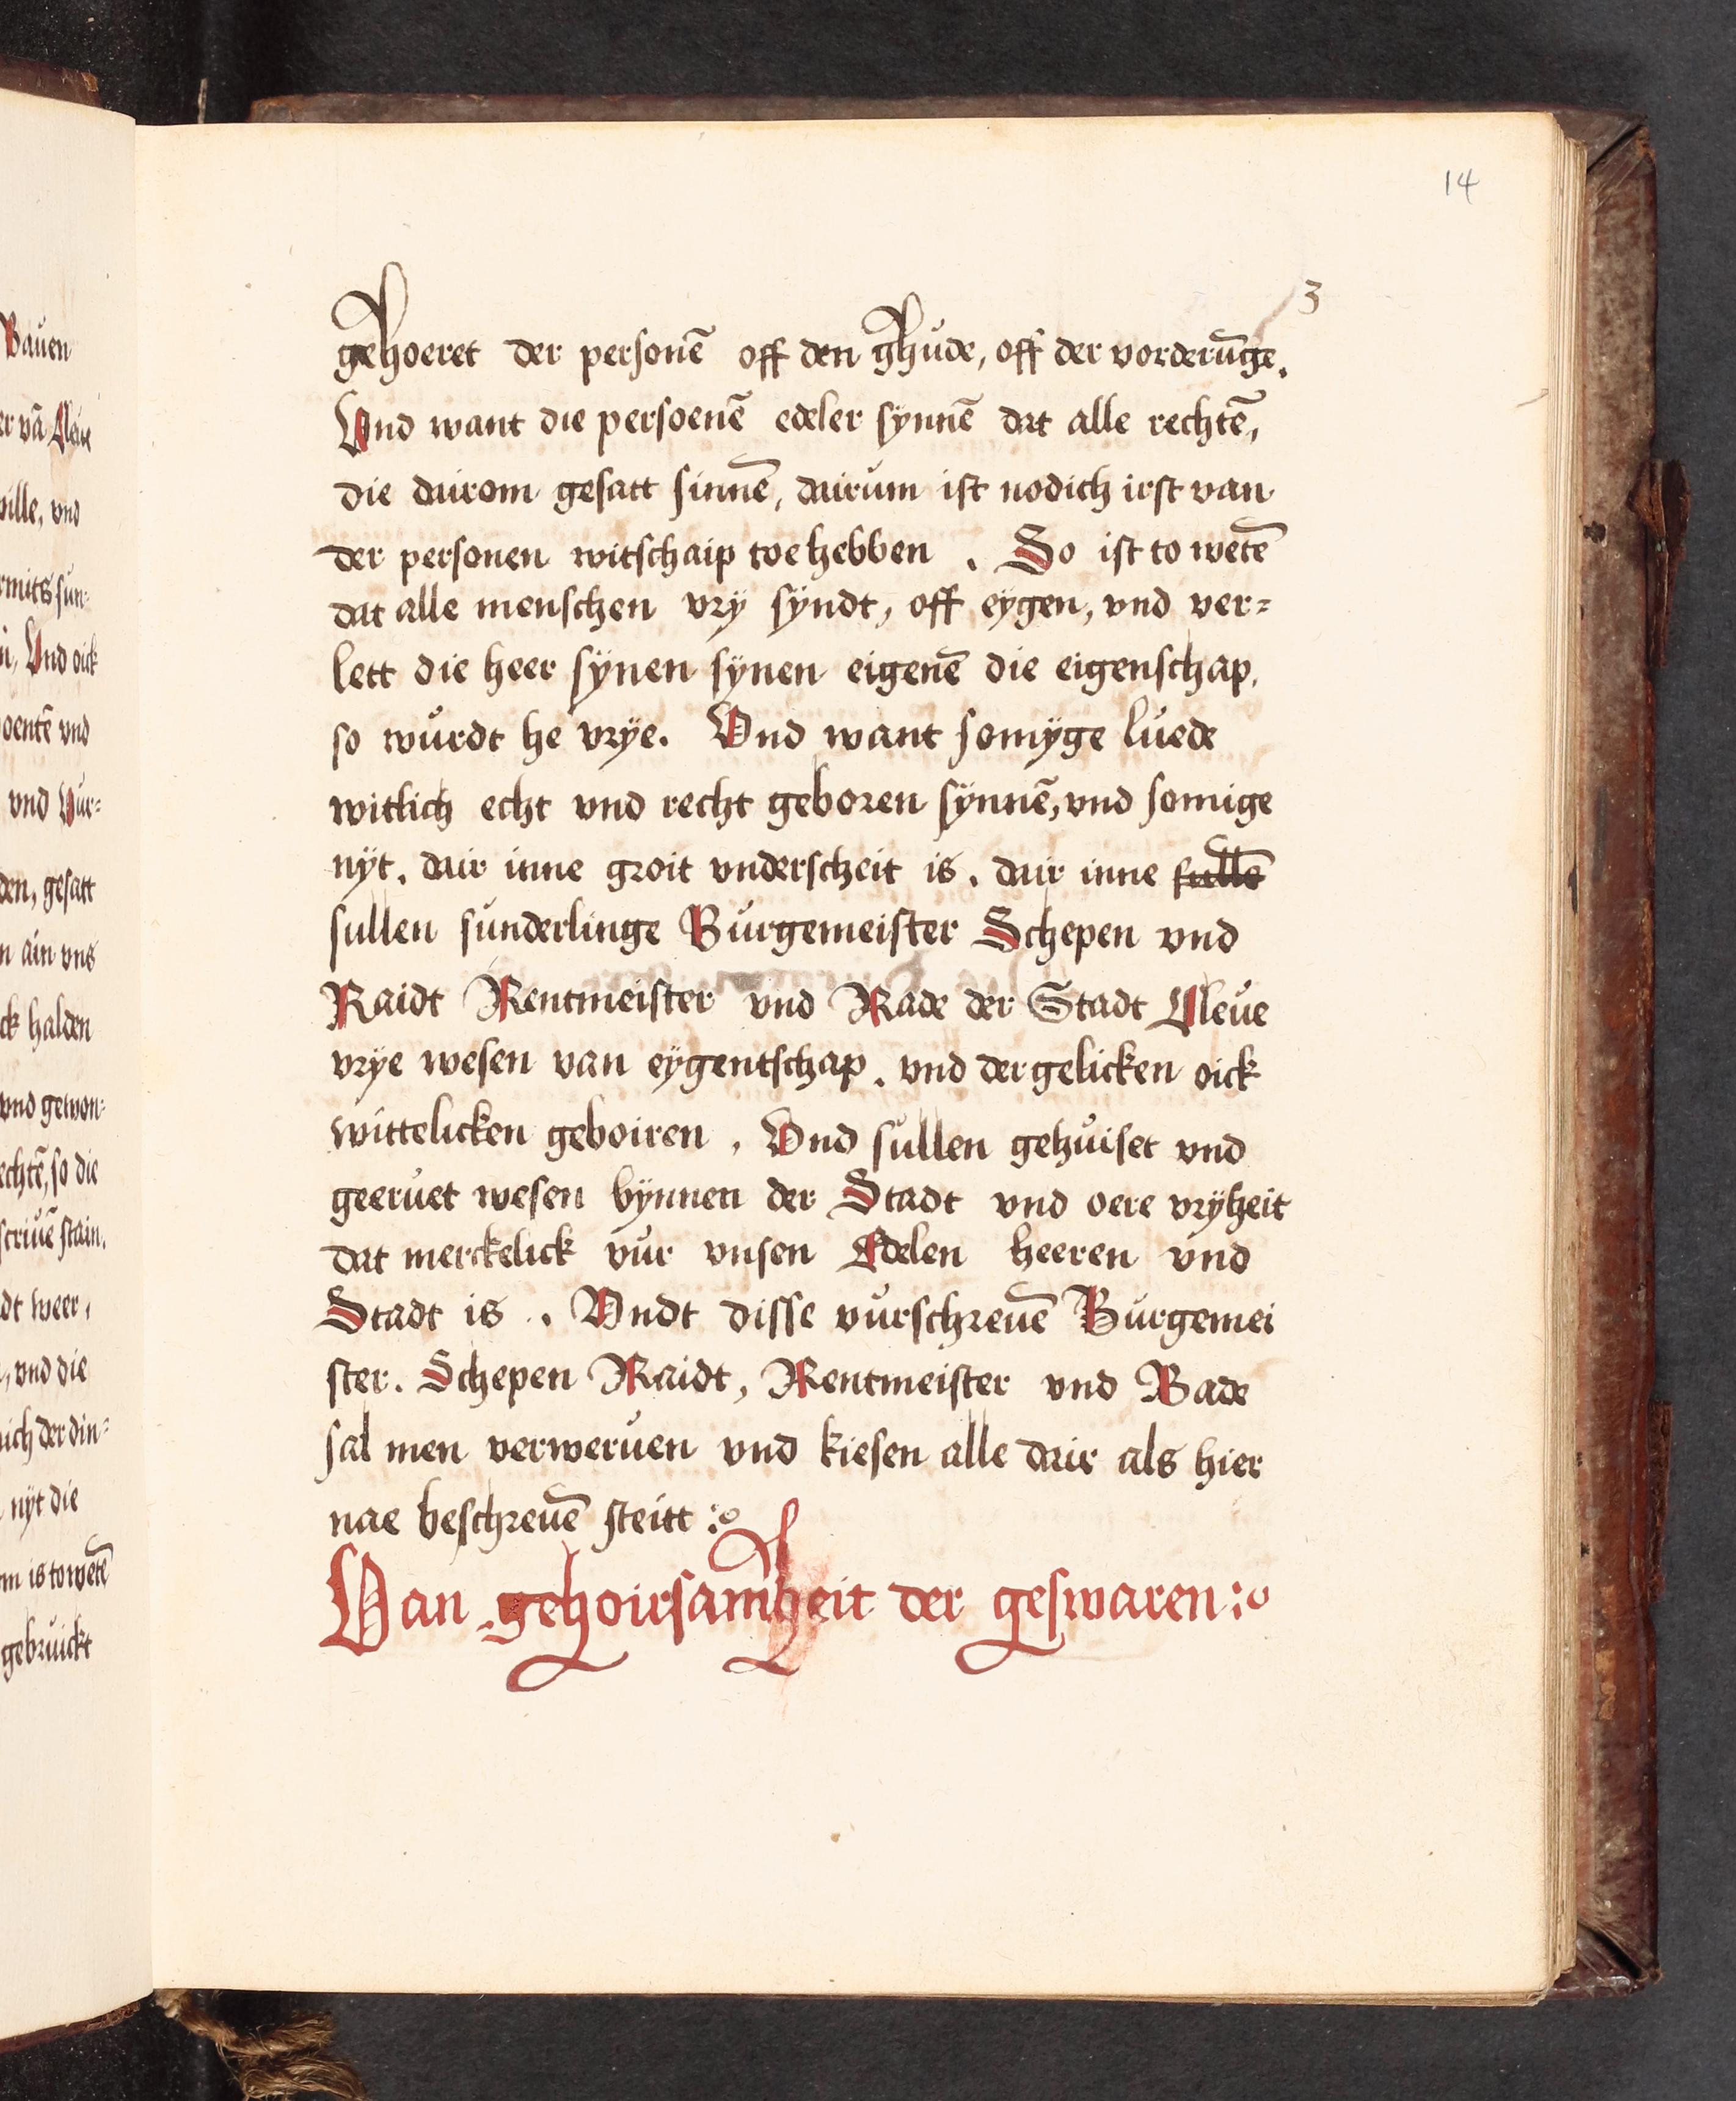 14
3
gehoeret der personē off den ghude, off der vorderūnge.
Vnd want die persoenē edeler synnē dat alle rechtē,
die dairom gesatt sinnē, dairum ist nodich irst van
der personen witschaip toe hebben . So ist to wetē
dat alle menschen vrÿ sÿndt, off eÿgen, vnd ver=
lett die heer sÿnen sÿnen eigenē die eigenschap,
so wurdt he vrÿe. Vnd want somÿge luede
witlich echt vnd recht geboren sÿnnē, vnd somige
nÿt. dair inne groit vnderscheit is. dair inne sullē
sullen sunderlinge Burgemeister Schepen vnd
Raidt Rentmeister vnd Rade der Stadt Cleue
vrÿe wesen van eÿgentschap. vnd dergelicken oick
wittelicken geboiren . Vnd sullen gehuiset vnd
geeruet wesen bÿnnen der Stadt vnd oere vrÿheit
dat merckelick vur vnsen Edelen heeren vnd
Stadt is . Vndt disse vurschreuē Burgemei
ster. Schepen Raidt, Rentmeister vnd Bade
sal men verweruen vnd kiesen alle dair als hier
nae beschreuē steitt :o
Van gehoirsamheit der geswaren :o
Bauen
er vā Cleue
wille, vnd
rmits sun=
i, Vnd oick
oentē vnd
vnd Vur=
den, gesatt
n ain vns
ck halden
vnd gewon=
echtē, so die
scriuē stain.
dt weer,
, vnd die
nich der din=
nÿt die
om is to wetē
gebruickt